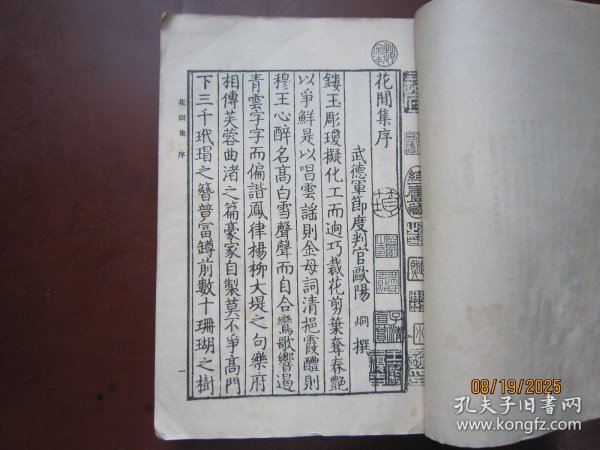 花間集序
武德軍節度判官歐陽 炯 撰
鏤玉彫瓊擬化工而迥巧裁花剪葉奪春豔
以爭鮮是以唱雲謡則金母詞清挹霞醴則
穆王心醉名高白雪聲聲而自合鸞歌響遏
青雲字字而偏諧鳳律楊柳大堤之句樂府
相傳芙蓉曲渚之篇豪家自製莫不爭高門
下三千玳瑁之簪競富罇前數十珊瑚之樹
花間集 序
一
08/19/2025
孔夫子旧书网
www.kongfz.com